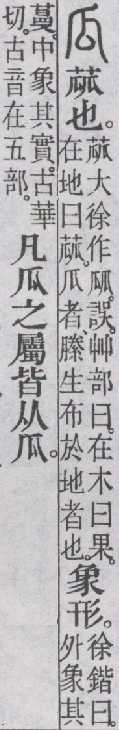 瓜 蓏也。蓏大徐作㼌。誤。艸部曰。在木曰果。在地曰蓏。瓜者、縢生布於地者也。象形。徐鍇曰。外象其
蔓。中象其實。古華切。古音在五部。凡瓜之屬皆从瓜。